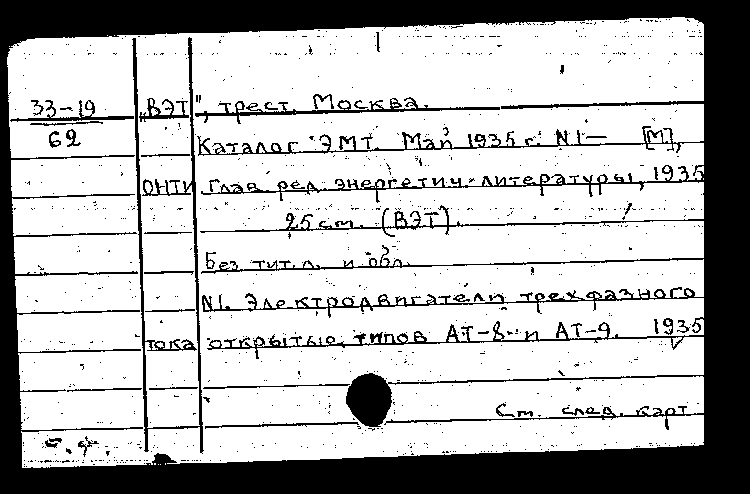 33-19 "ВЭТ", трест. Москва.
62
Каталог ЭМТ. Май 1935 г. N1— [М],
ОНТИ Глав. ред. энергетич. литературы, 1935
25 ст. (ВЭТ).
Без тит. л. и обл.
N1. Электродвигатели трехфазного
тока открытые, типов АТ-8 и АТ-9. 1935
См. след. карт